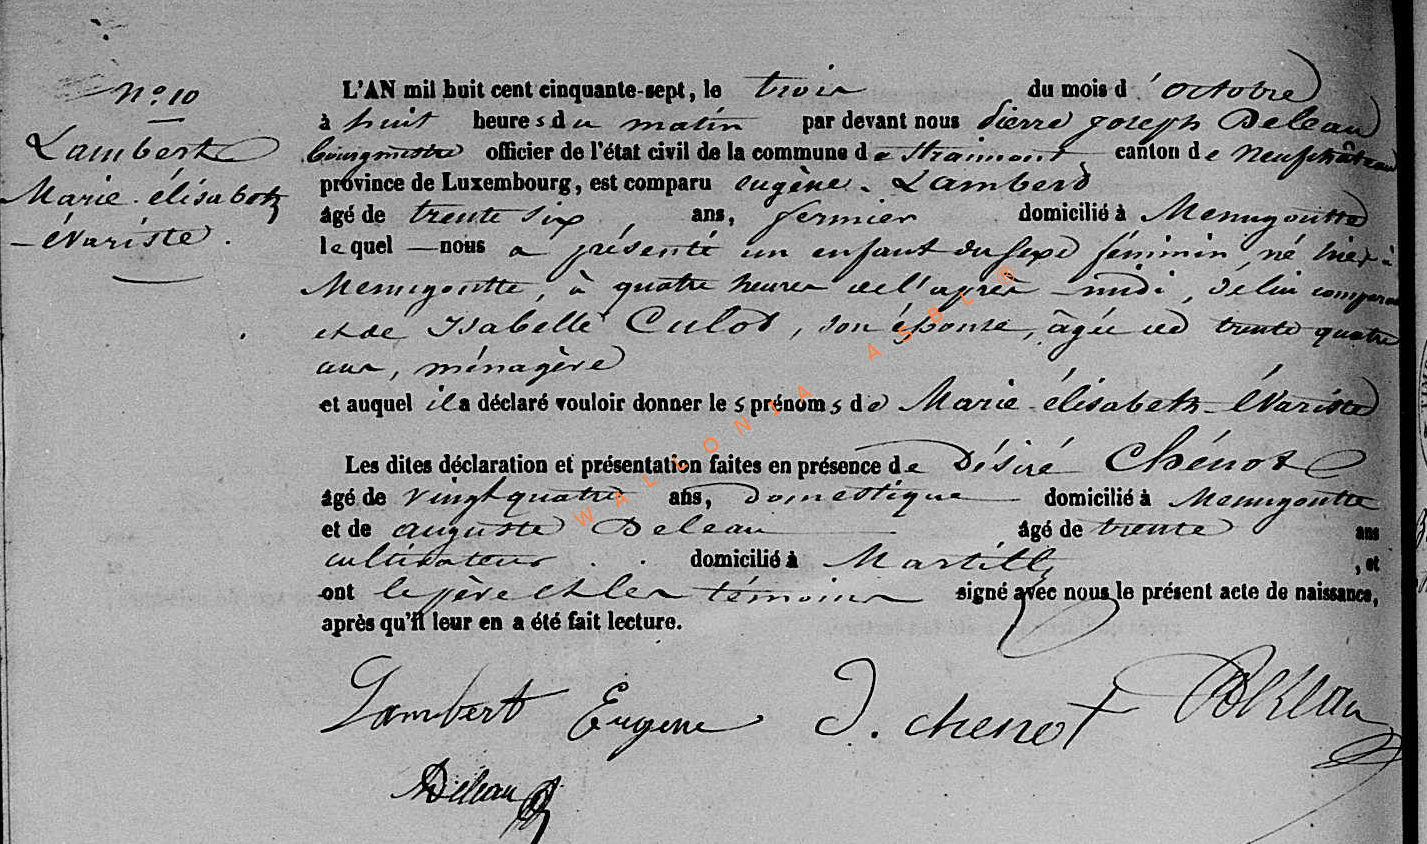 N° 10
Lambert
Marie-élisabeth
-évariste.
L'AN mil huit cent cinquante-sept, le trois du mois d'octobre
à huit heures du matin par devant nous Pierre Joseph Deleau
bourgmestre officier de l'état civil de la commune de Straimont, canton de Neufchâteau
province de Luxembourg, est comparu eugène Lambert
âgé de trente six ans, fermier domicilié à Menugoutte
lequel nous a présenté un enfant du sexe féminin, né hier à
Menugoutte, à quatre heures de l'après-midi, de lui comparant
et de Isabelle Culot, son épouse, âgée de trente quatre
ans, ménagère
et auquel il a déclaré vouloir donner les prénoms de Marie-élisabeth-évariste
Les dites déclaration et présentation faites en présence de Désiré Chénot
âgé de vingt quatre ans, Domestique domicilié à Menugoutte
et de auguste Deleau âgé de trente ans
cultivateur domicilié à Martilly, et
ont le père et les témoins signé avec nous le présent acte de naissance,
après qu'il leur en a été fait lecture.
Lambert Eugene D. chenot
Deleau
WALLONIA ASBL ©